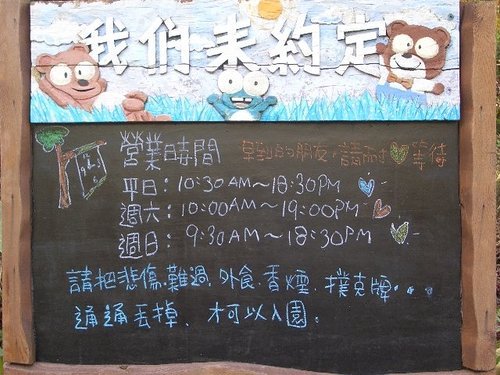 我们来約定
營業時間
早到的朋友，請耐♡等待
平日：10:30AM～18:30PM
週六：10:00AM～19:00PM
週日：9:30AM～18:30PM
請把悲傷.難過.外食.香煙.撲克牌...
通通丟掉，才可以入園。